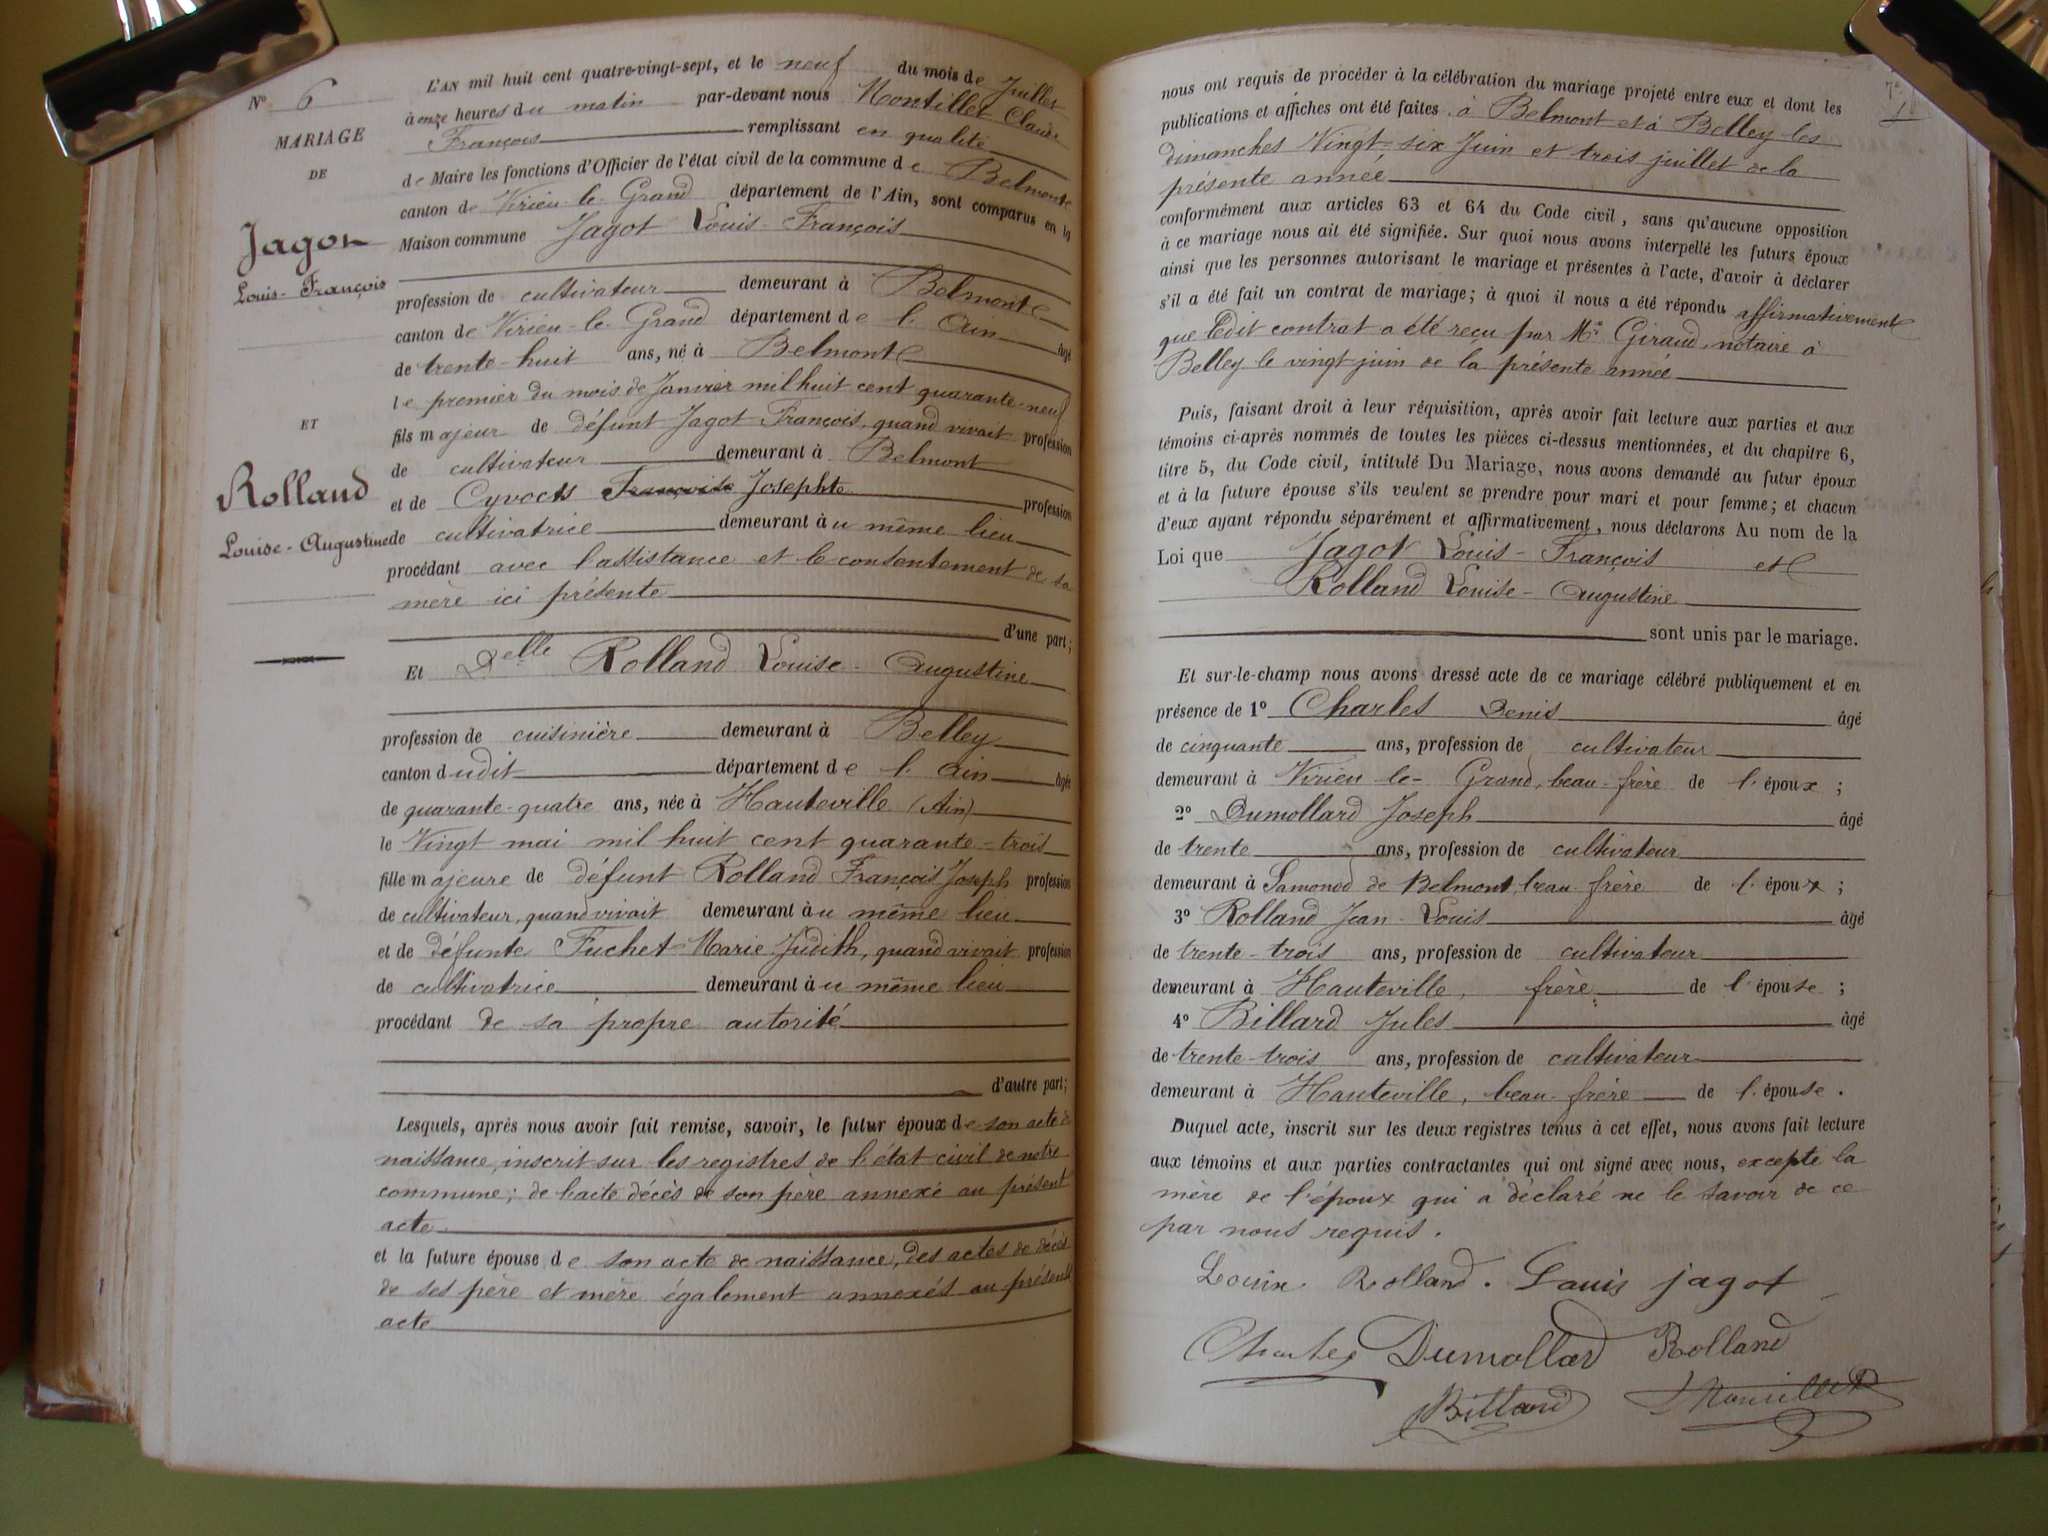 N° 6
MARIAGE
DE
Jagot
Louis-François
ET
Rolland
Louise-Augustine
L'AN mil huit cent quatre-vingt-sept, et le neuf du mois de Juillet
à onze heures du matin par-devant nous Montillet Claude
François remplissant en qualité
de Maire les fonctions d'Officier de l'état civil de la commune de Belmont
canton de Virieu-le-Grand département de l'Ain, sont comparus en la
Maison commune Jagot Louis-François
profession de cultivateur demeurant à Belmont
canton de Virieu-le-Grand département de l'Ain âgé
de trente-huit ans, né à Belmont
le premier du mois de Janvier mil huit cent quarante-neuf
fils majeur de défunt Jagot François, quand vivait profession
de cultivateur demeurant à Belmont
et de Cyvocts Françoise Josephte profession
de cultivatrice demeurant au même lieu
procédant avec l'assistance et le consentement de sa
mère ici présente
d'une part;
Et Delle Rolland Louise-Augustine
profession de cuisinière demeurant à Belley
canton dudit département de l'Ain âgée
de quarante-quatre ans, née à Hauteville (Ain)
le Vingt mai mil huit cent quarante-trois
fille majeure de défunt Rolland François Joseph profession
de cultivateur, quand vivait demeurant au même lieu
et de défunte Fuchet Marie Judith, quand vivait profession
de cultivatrice demeurant au même lieu
procédant de sa propre autorité
d'autre part;
Lesquels, après nous avoir fait remise, savoir, le futur époux de son acte de
naissance, inscrit sur les registres de l'état civil de notre
commune; de l'acte décès de son père annexé au présent
acte
et la future épouse de son acte de naissance, des actes de décès
de ses père et mère également annexés au présent
acte
nous ont requis de procéder à la célébration du mariage projeté entre eux et dont les
publications et affiches ont été faites à Belmont et à Belley les
dimanches Vingt-six Juin et trois juillet de la
présente année
conformément aux articles 63 et 64 du Code civil, sans qu'aucune opposition
à ce mariage nous ait été signifiée. Sur quoi nous avons interpellé les futurs époux
ainsi que les personnes autorisant le mariage et présentes à l'acte, d'avoir à déclarer
s'il a été fait un contrat de mariage; à quoi il nous a été répondu affirmativement
que ledit contrat a été reçu par Me Giraud, notaire à
Belley le vingt juin de la présente année
Puis, faisant droit à leur réquisition, après avoir fait lecture aux parties et aux
témoins ci-après nommés de toutes les pièces ci-dessus mentionnées, et du chapitre 6,
titre 5, du Code civil, intitulé Du Mariage, nous avons demandé au futur époux
et à la future épouse s'ils veulent se prendre pour mari et pour femme; et chacun
d'eux ayant répondu séparément et affirmativement, nous déclarons Au nom de la
Loi que Jagot Louis-François et
Rolland Louise-Augustine
sont unis par le mariage.
Et sur-le-champ nous avons dressé acte de ce mariage célébré publiquement et en
présence de 1° Charles Denis âgé
de cinquante ans, profession de cultivateur
demeurant à Virieu-le-Grand, beau-frère de l'époux;
2° Dumollard Joseph âgé
de trente ans, profession de cultivateur
demeurant à Samonod de Belmont, beau-frère de l'époux;
3° Rolland Jean-Louis âgé
de trente-trois ans, profession de cultivateur
demeurant à Hauteville, frère de l'épouse;
4° Billard Jules âgé
de trente-trois ans, profession de cultivateur
demeurant à Hauteville, beau-frère de l'épouse.
Duquel acte, inscrit sur les deux registres tenus à cet effet, nous avons fait lecture
aux témoins et aux parties contractantes qui ont signé avec nous, excepté la
mère de l'époux qui a déclaré ne le savoir de ce
par nous requis.
Louise Rolland. Louis Jagot
Charles Dumollard Rolland
Billard Montillet